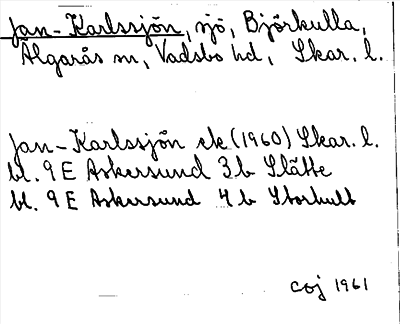 Jan-Karlssjön, sjö, Björkulla,
Älgarås sn, Vadsbo hd, Skar. l.
Jan-Karlssjön ek (1960) Skar. l.
bl. 9 E Askersund 3 b Slätte
bl. 9 E Askersund 4 b Storhult
CGJ 1961